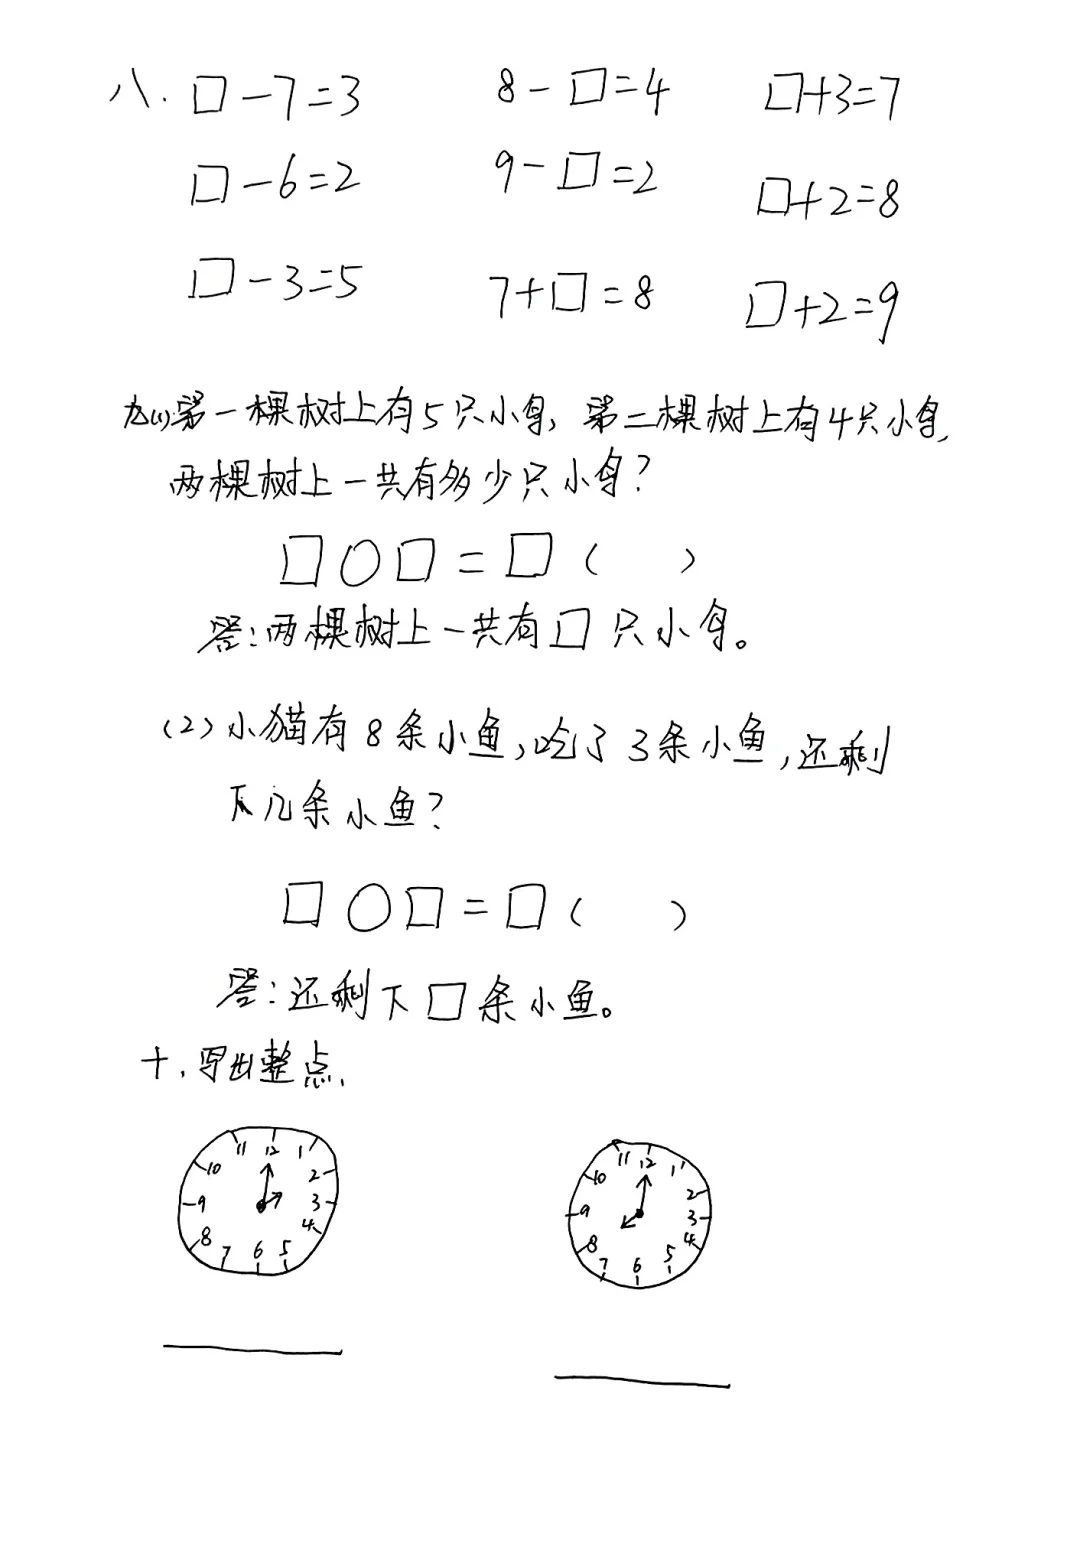 八. □-7=3 8-□=4 □+3=7
□-6=2 9-□=2 □+2=8
□-3=5 7+□=8 □+2=9
九(1).第一棵树上有5只小鸟,第二棵树上有4只小鸟,
两棵树上一共有多少只小鸟?
□○□=□( )
答:两棵树上一共有□只小鸟。
(2)小猫有8条小鱼,吃了3条小鱼,还剩
下几条小鱼?
□○□=□( )
答:还剩下□条小鱼。
十.写出整点.
11 12 1 10 2 9 3 8 4 7 6 5
11 12 1 10 2 9 3 8 4 7 6 5